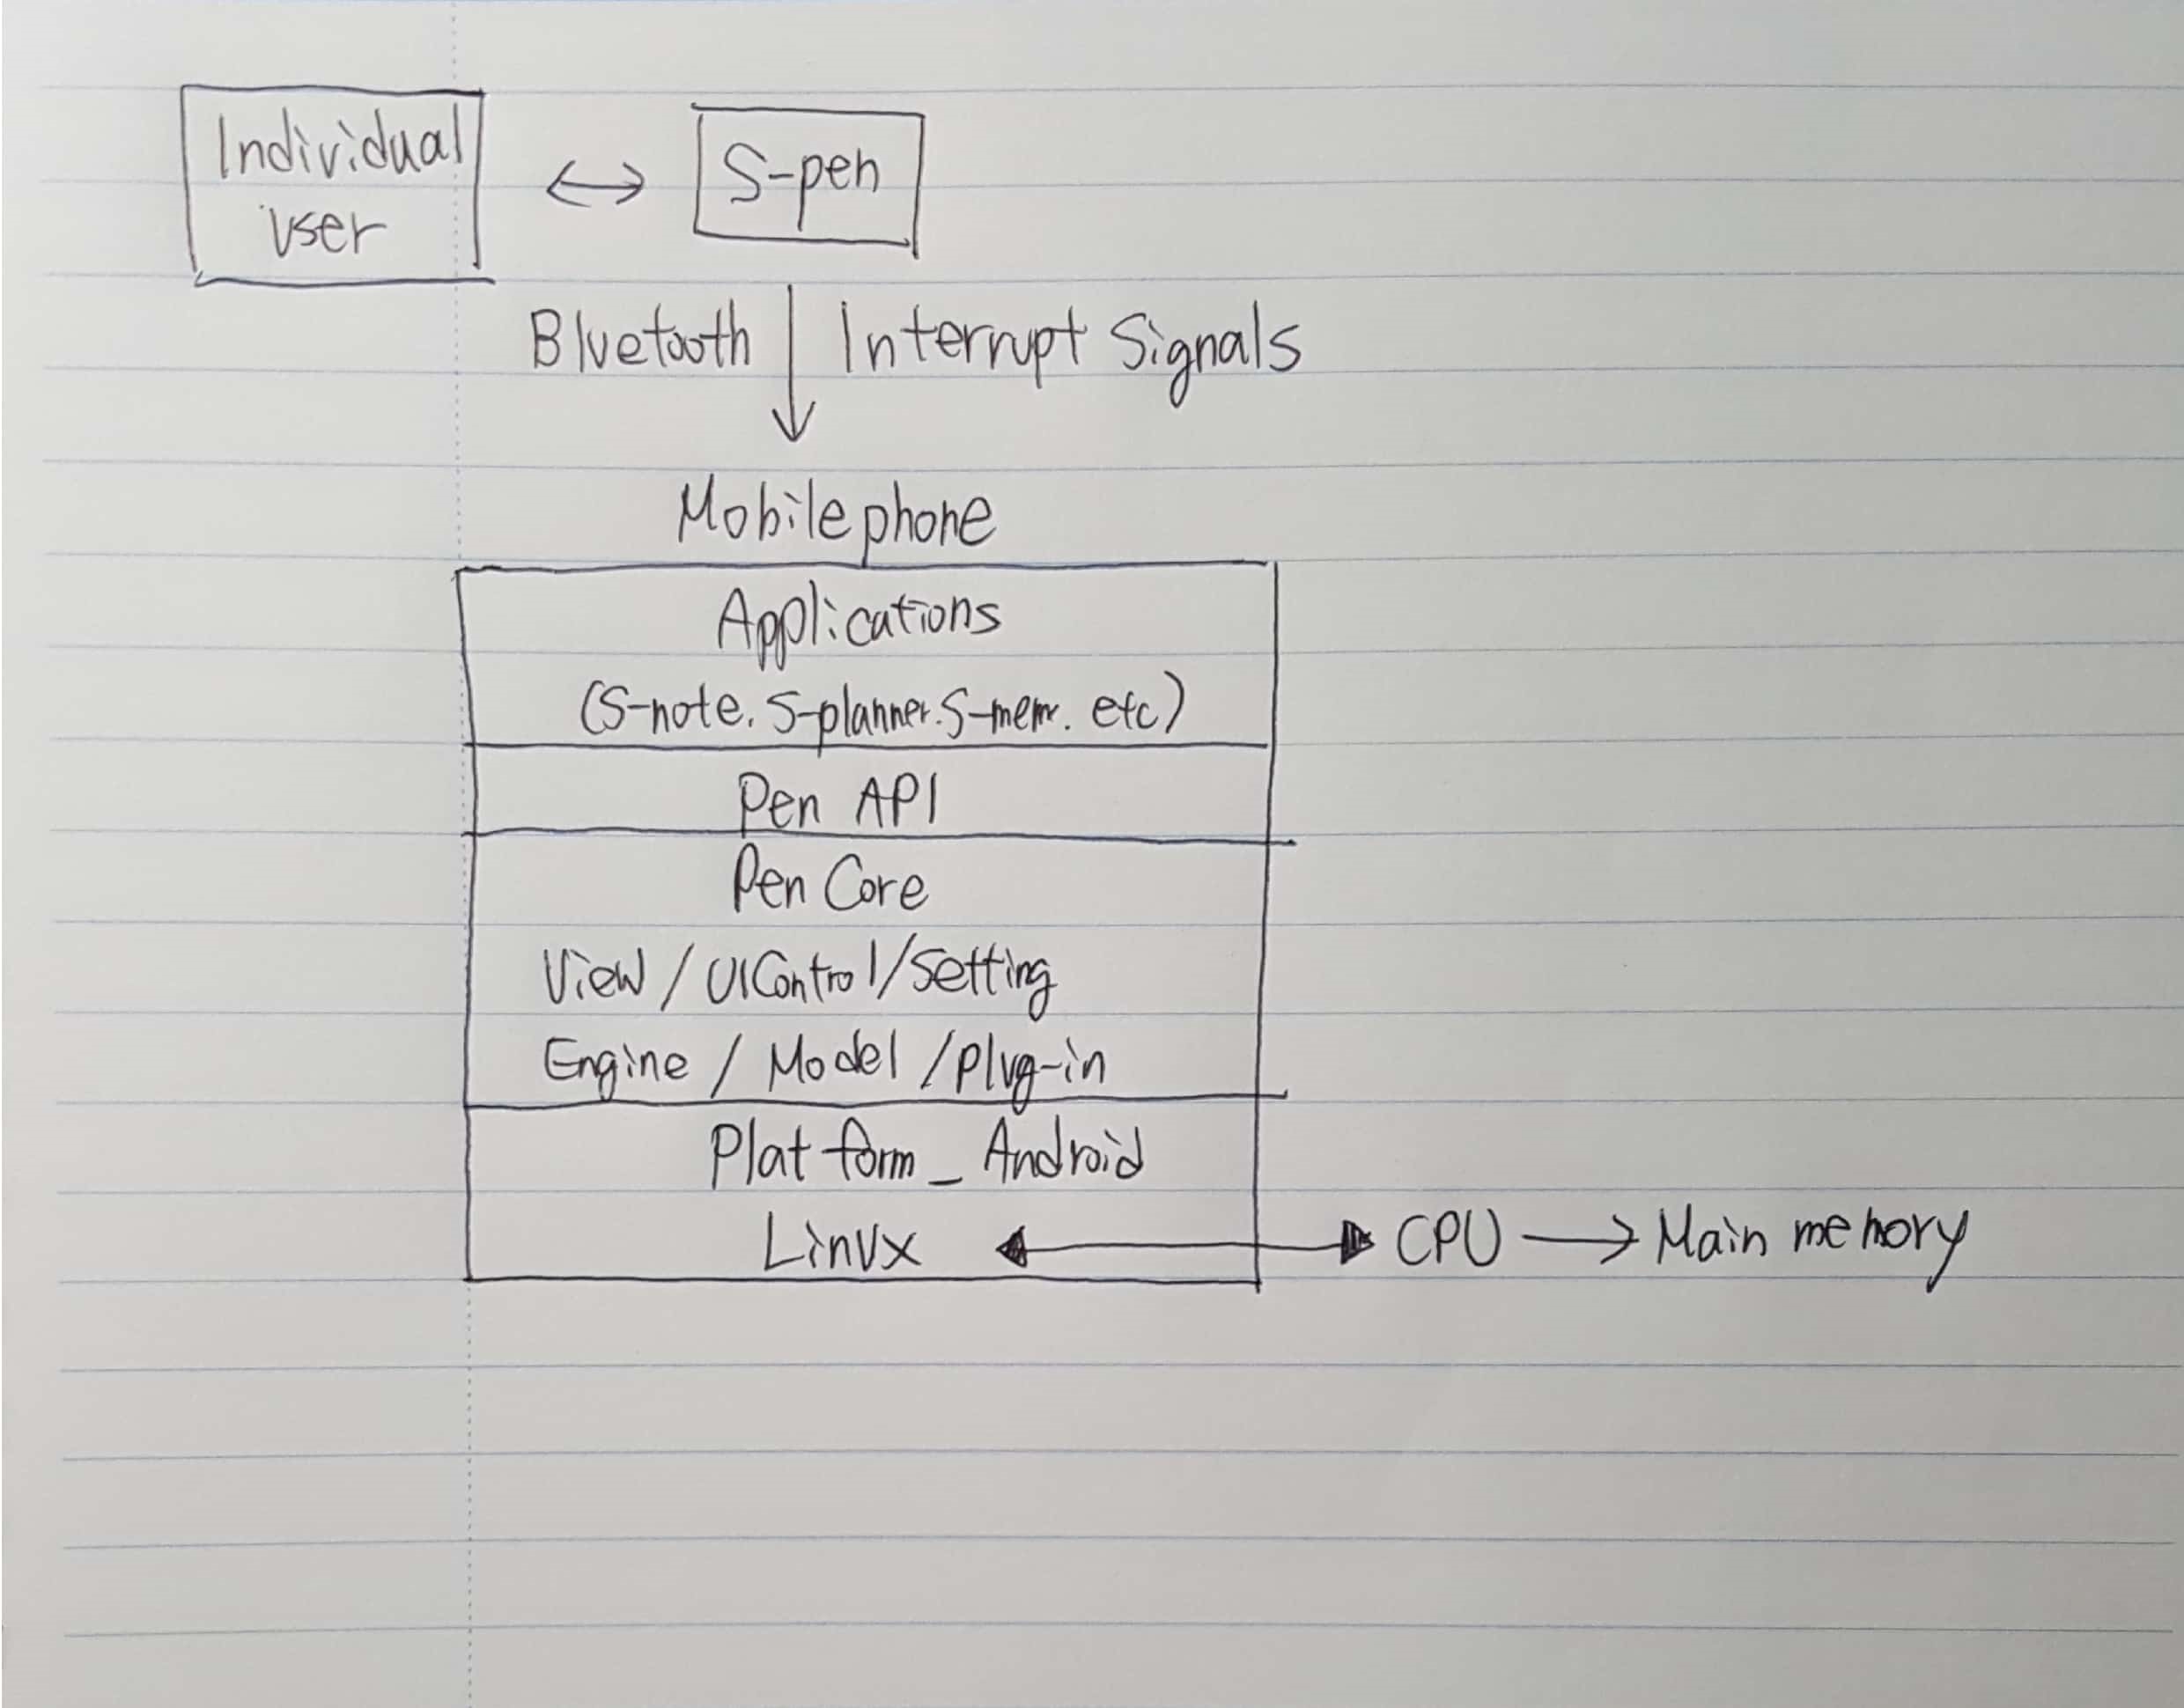 Individual
user
S-pen
Bluetooth
Interrupt Signals
Mobile phone
Applications
(S-note. S-planner. S-memo. etc)
Pen API
Pen Core
View / UIControl/Setting
Engine / Model / Plug-in
Platform_ Android
Linux
CPU
Main memory